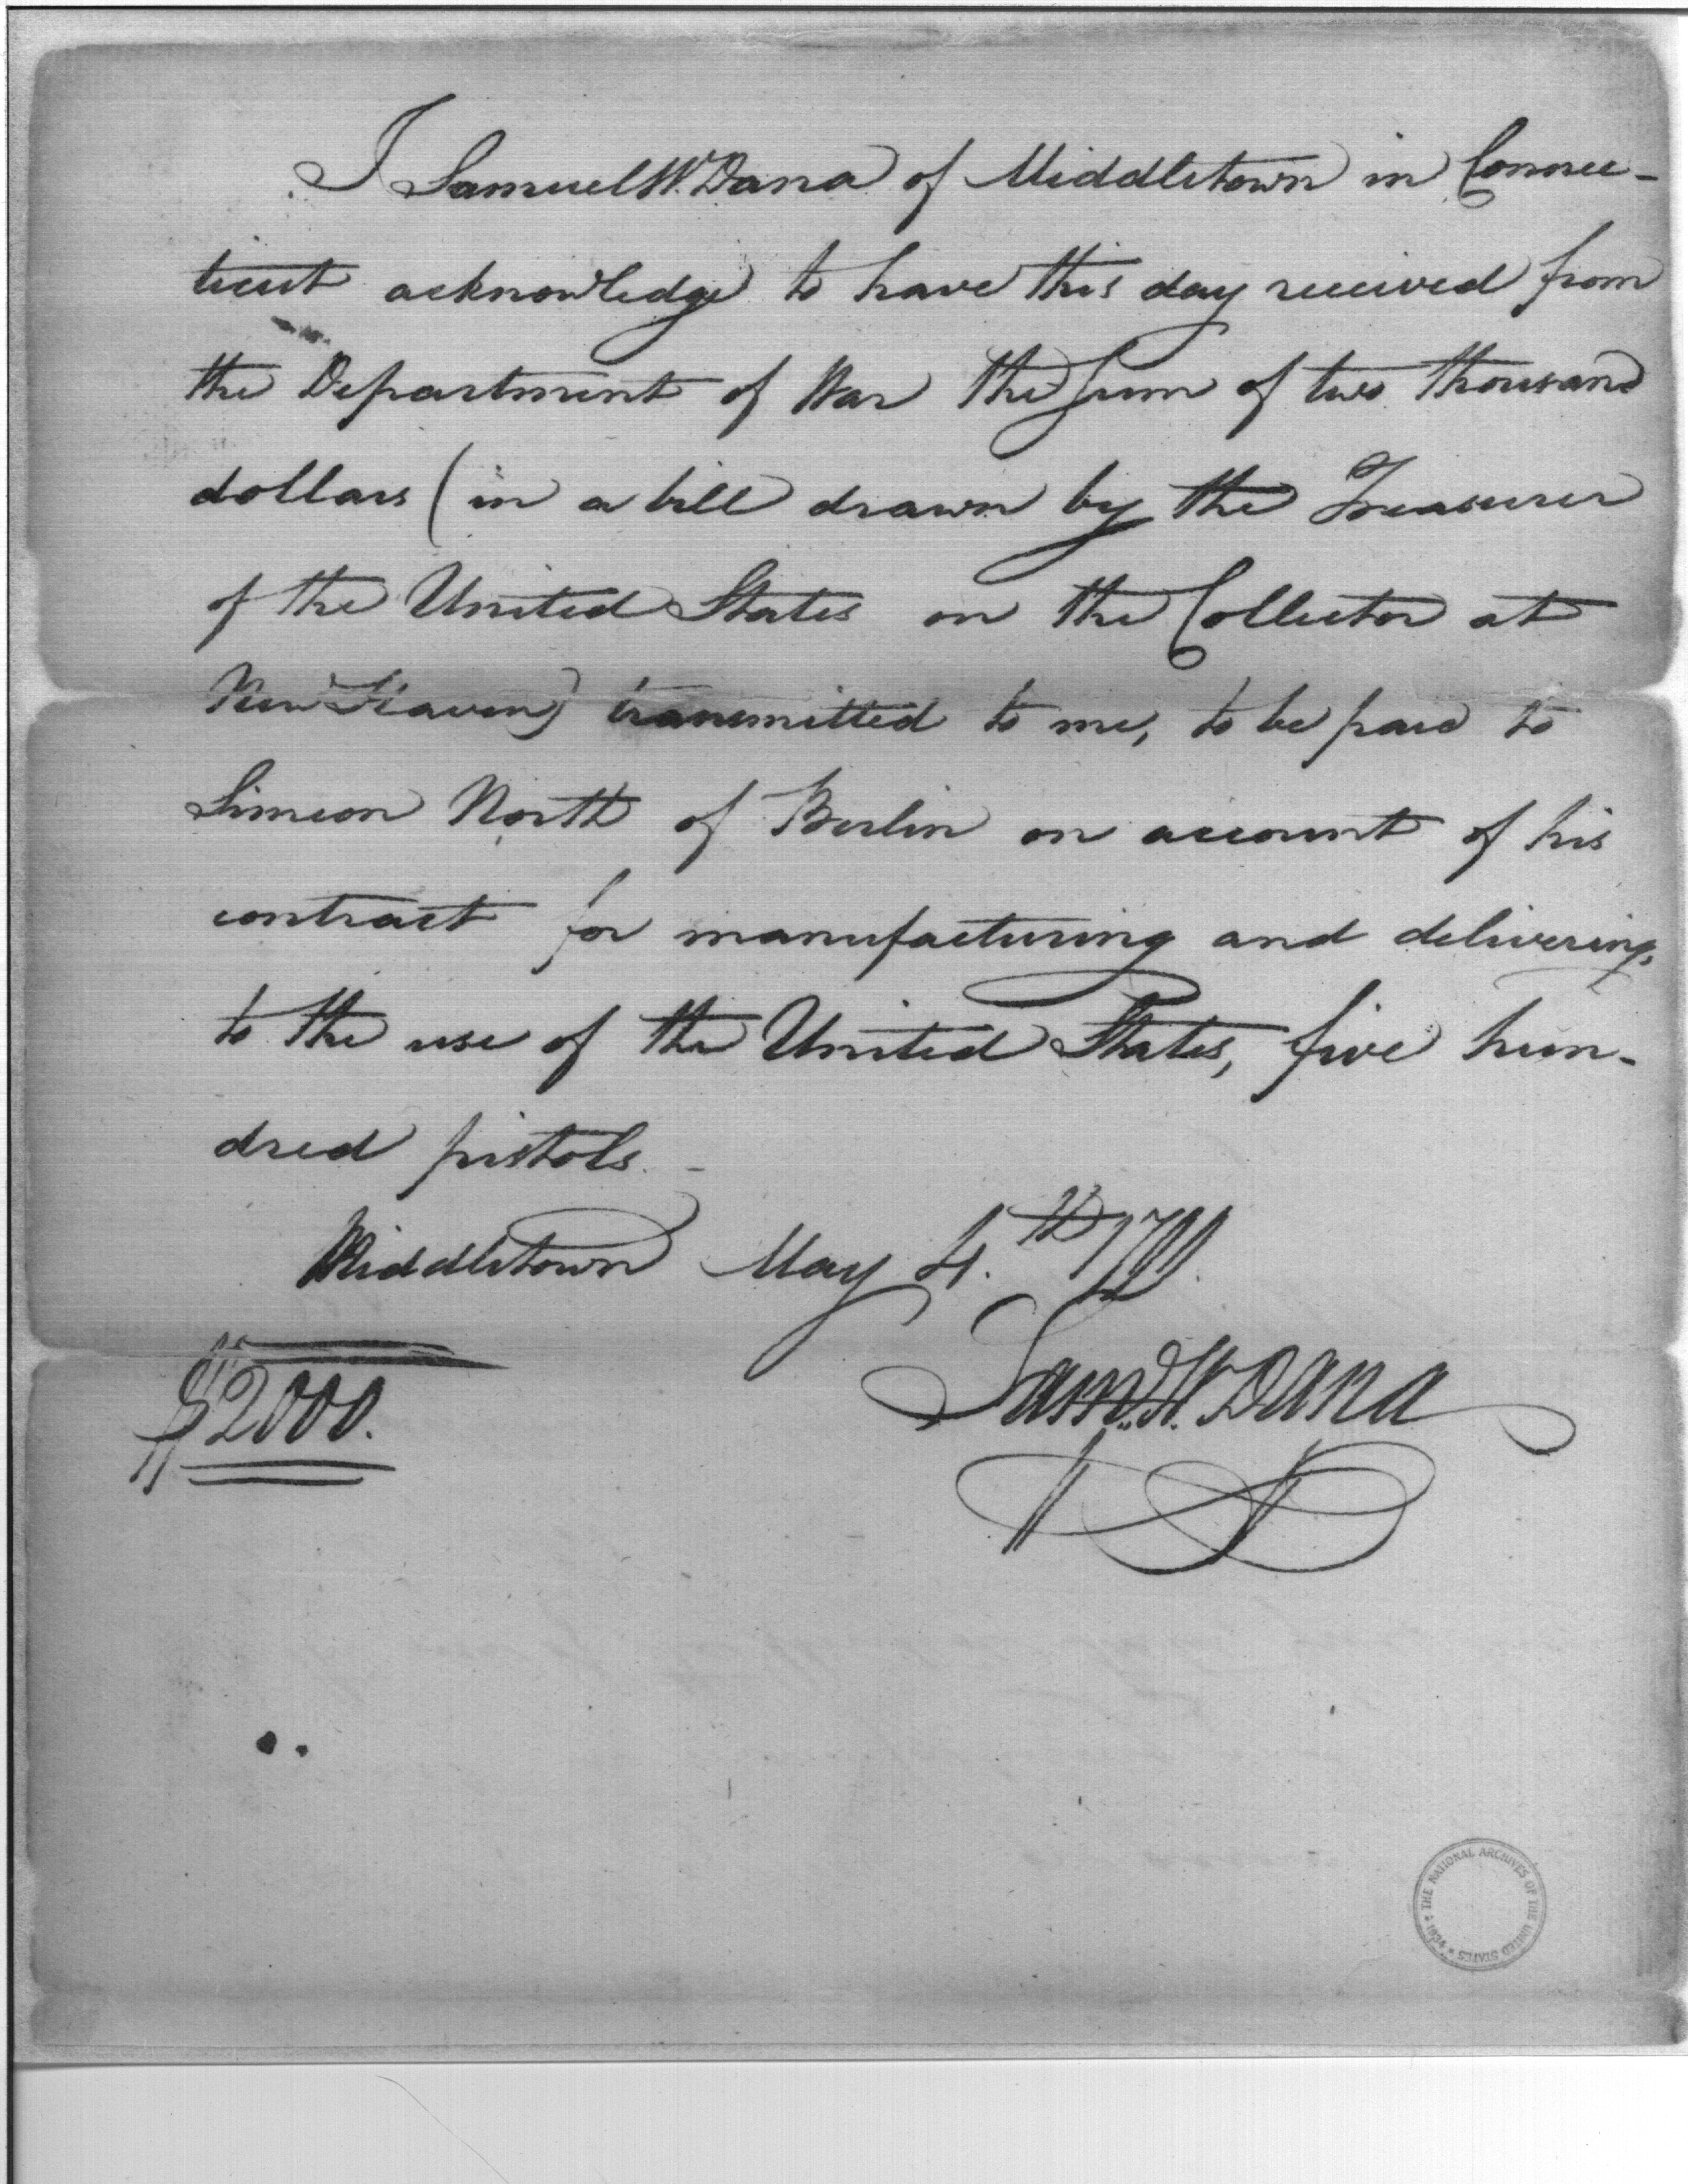 I Samuel W. Dana of Middletown in Connec-
ticut acknowledge to have this day received from
the Department of War the sum of two thousand
dollars (in a bill drawn by the Treasurer
of the United States on the Collector at
New Haven) transmitted to me, to be paid to
Simeon North of Berlin on account of his
contract for manufacturing and delivering,
to the use of the United States, five hun-
dred pistols. -
Middletown May 4.th 1799.
$2000.
Saml. W. Dana
THE NATIONAL ARCHIVES OF THE UNITED STATES * 1934 *